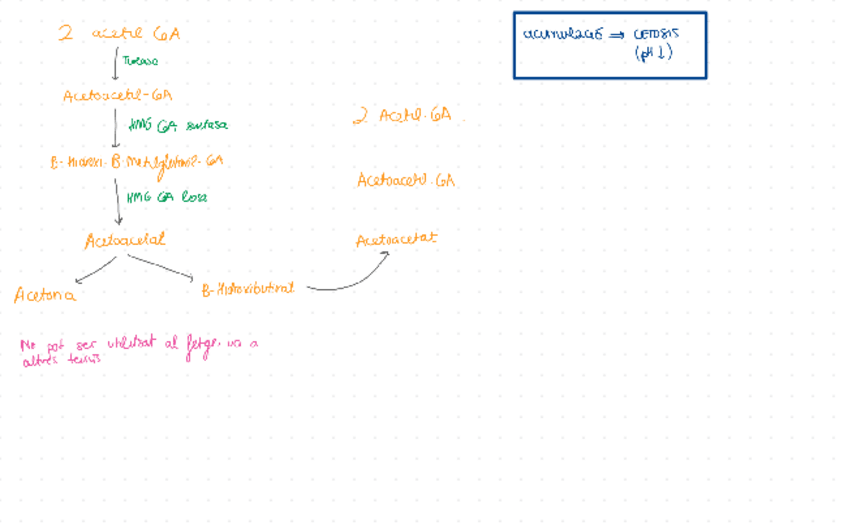 2 acetil CoA
Tiolasa
Acetoacetil-CoA
HMG CoA sintasa
B-Hidroxi-B-Metilglutaril-CoA
HMG CoA liasa
Acetoacetat
Acetona
B-Hidroxibutirat
No pot ser utilitzat al fetge, va a
altres teixits
2 Acetil-CoA
Acetoacetil-CoA
Acetoacetat
acumulació ⇒ CETOSIS
(pH ↓)